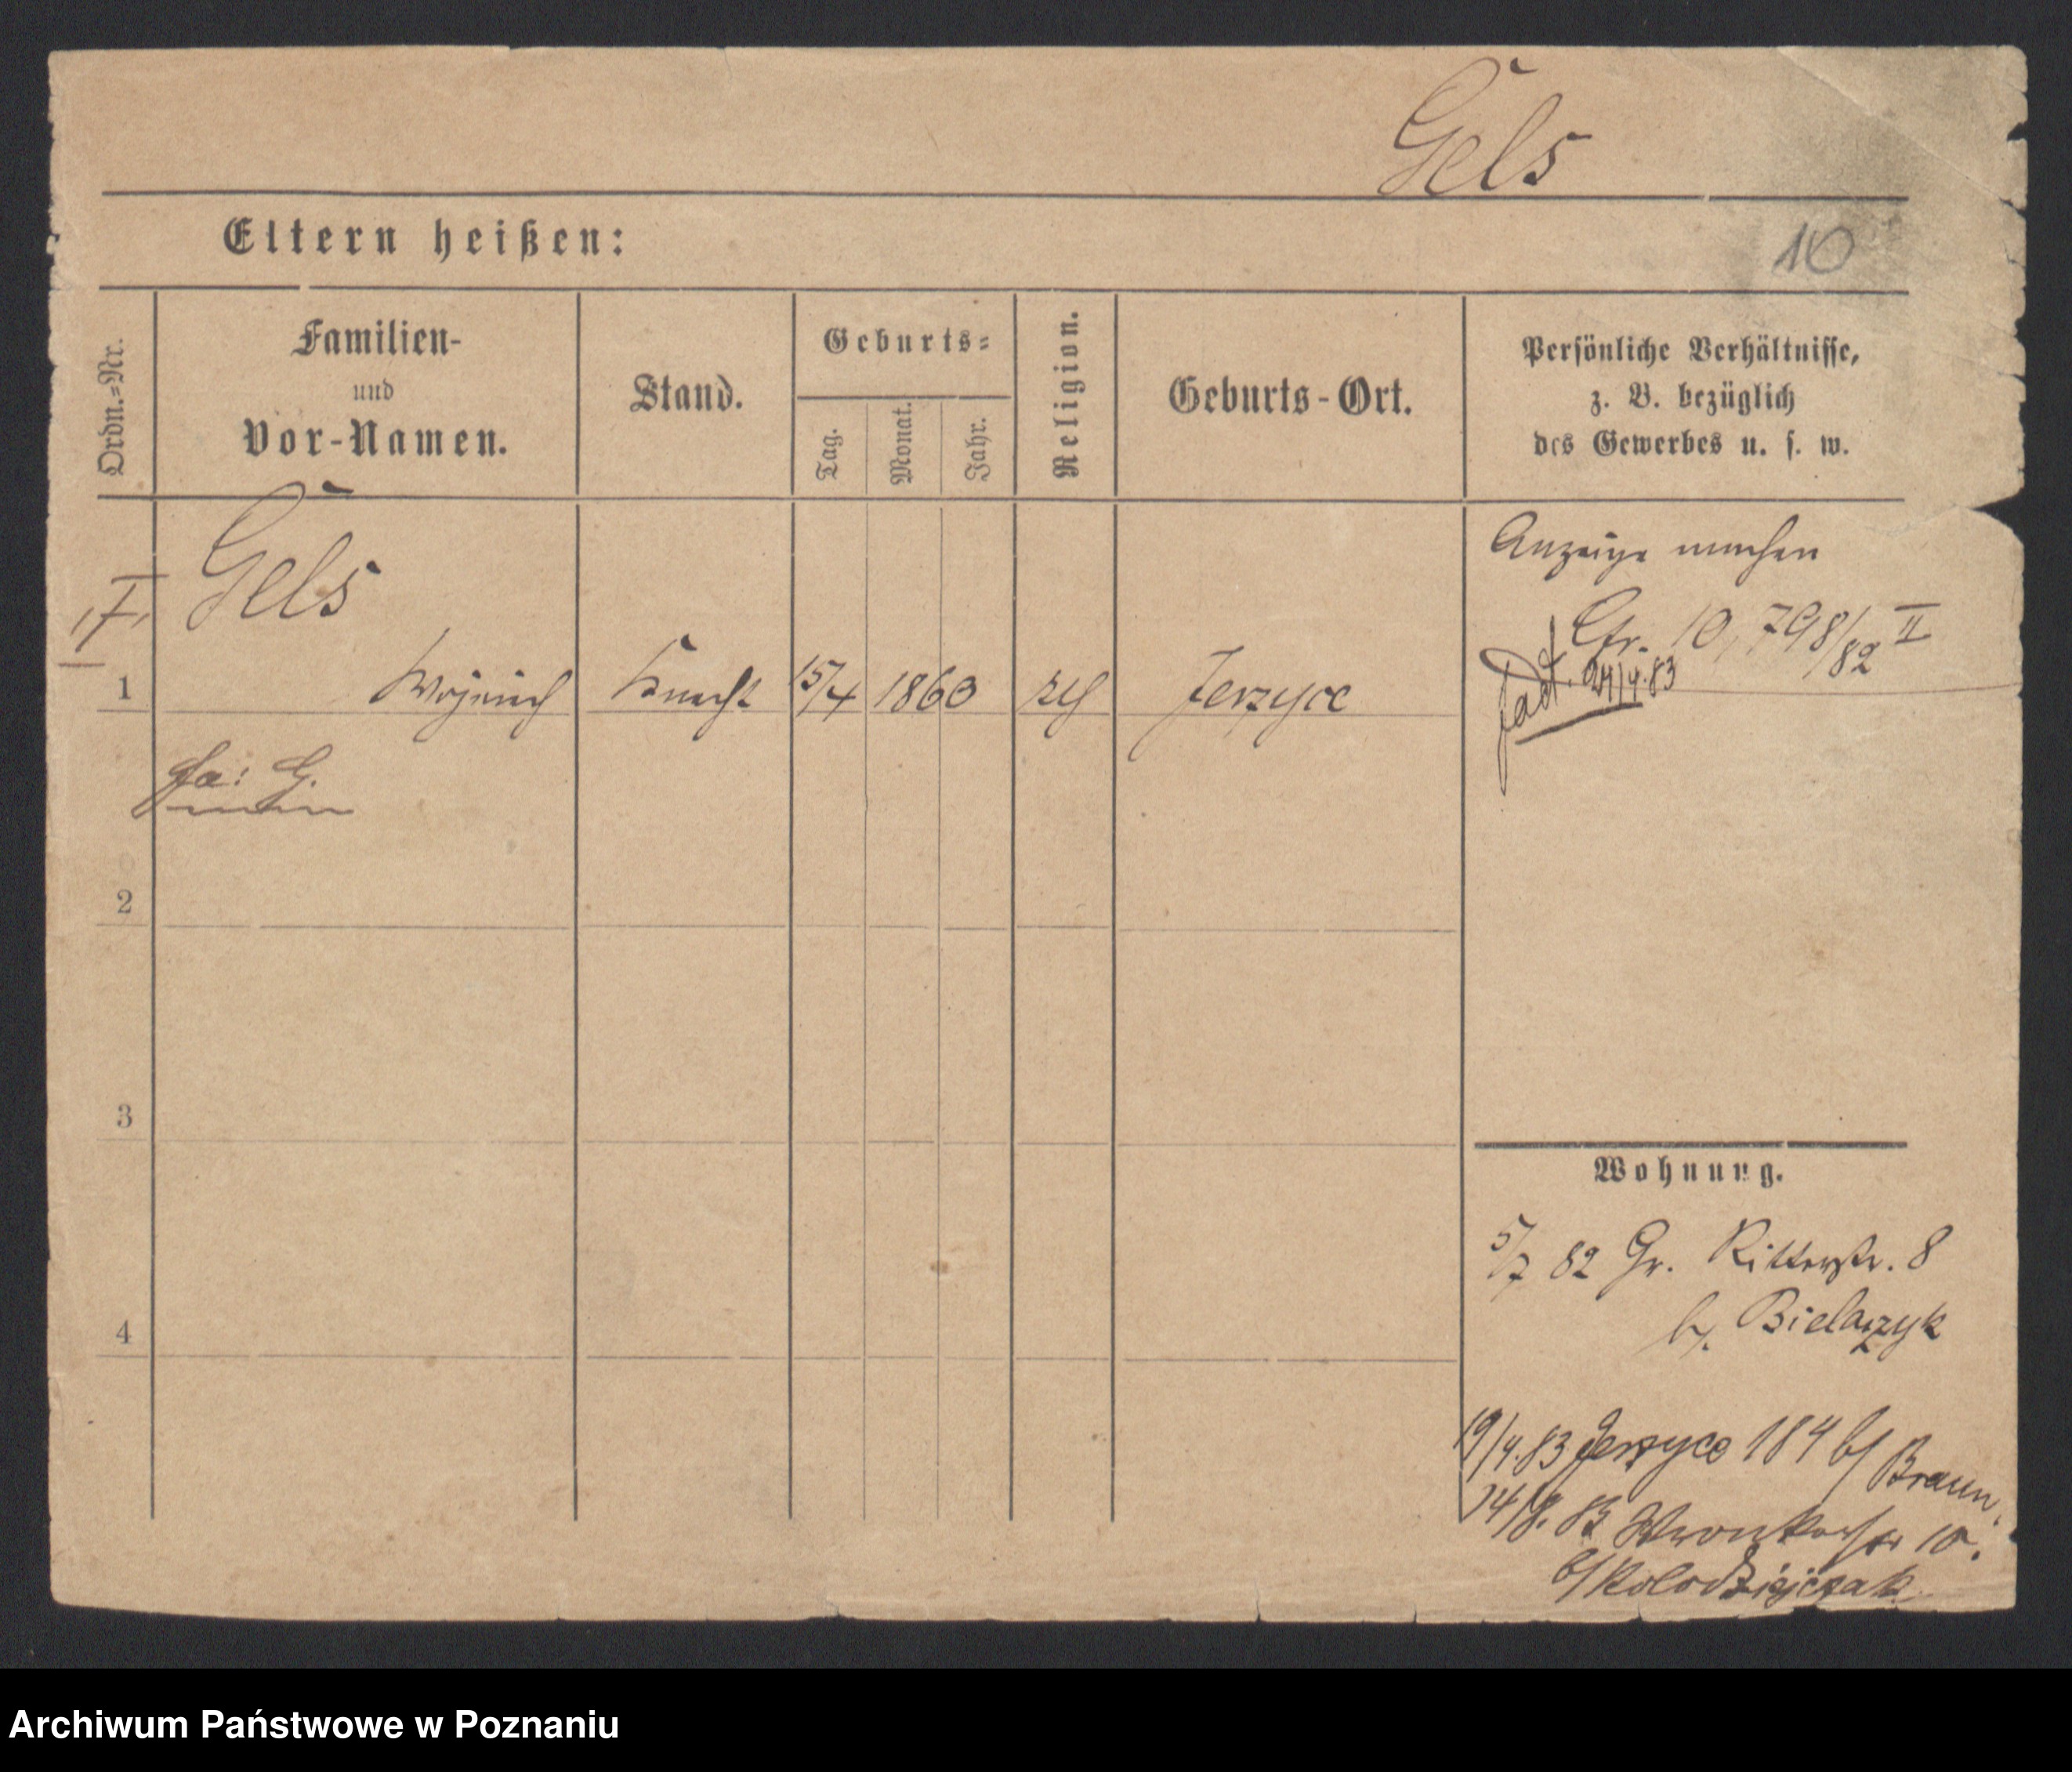 Gels
Eltern heißen:
10
Ordn.=Nr.
Familien-
und
Vor-Namen.
Stand.
Geburts=
Tag.
Monat.
Jahr.
Religion.
Geburts-Ort.
Persönliche Verhältnisse,
z. B. bezüglich
des Gewerbes u. s. w.
Gels
1 Knecht 15/4 1860 Jerzyce
Anzeige machen
10,798/82 II
24/4.83
2
3
4
Wohnung.
5/7 82 Gr. Ritterstr. 8
b. Bielaczyk
19/4.83 Jerzyce 184 b/ Braun.
14/8. 83 Wronkerstr 10.
b/ Kolodziejczak